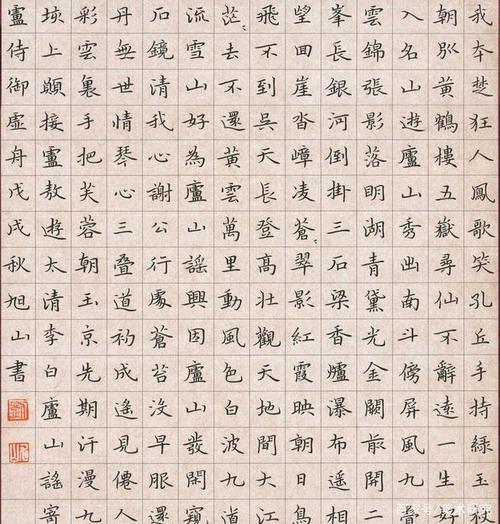 我本楚狂人鳳歌笑孔丘手持綠玉
朝別黃鶴樓五嶽尋仙不辭遠一生好
入名山遊廬山秀出南斗傍屏風九疊
雲錦張影落明湖青黛光金闕前開二
峯長銀河倒掛三石梁香爐瀑布遙相
望回崖沓嶂凌蒼〻翠影紅霞映朝日鳥
飛不到吳天長登高壯觀天地間大江
茫〻去不還黃雲萬里動風色白波九道
流雪山好為廬山謠興因廬山發閑窺
石鏡清我心謝公行處蒼苔沒早服還
丹無世情琴心三疊道初成遙見僊人
彩雲裏手把芙蓉朝玉京先期汗漫九
垓上願接盧敖遊太清李白廬山謠寄
盧侍御虛舟戊戌秋旭山書